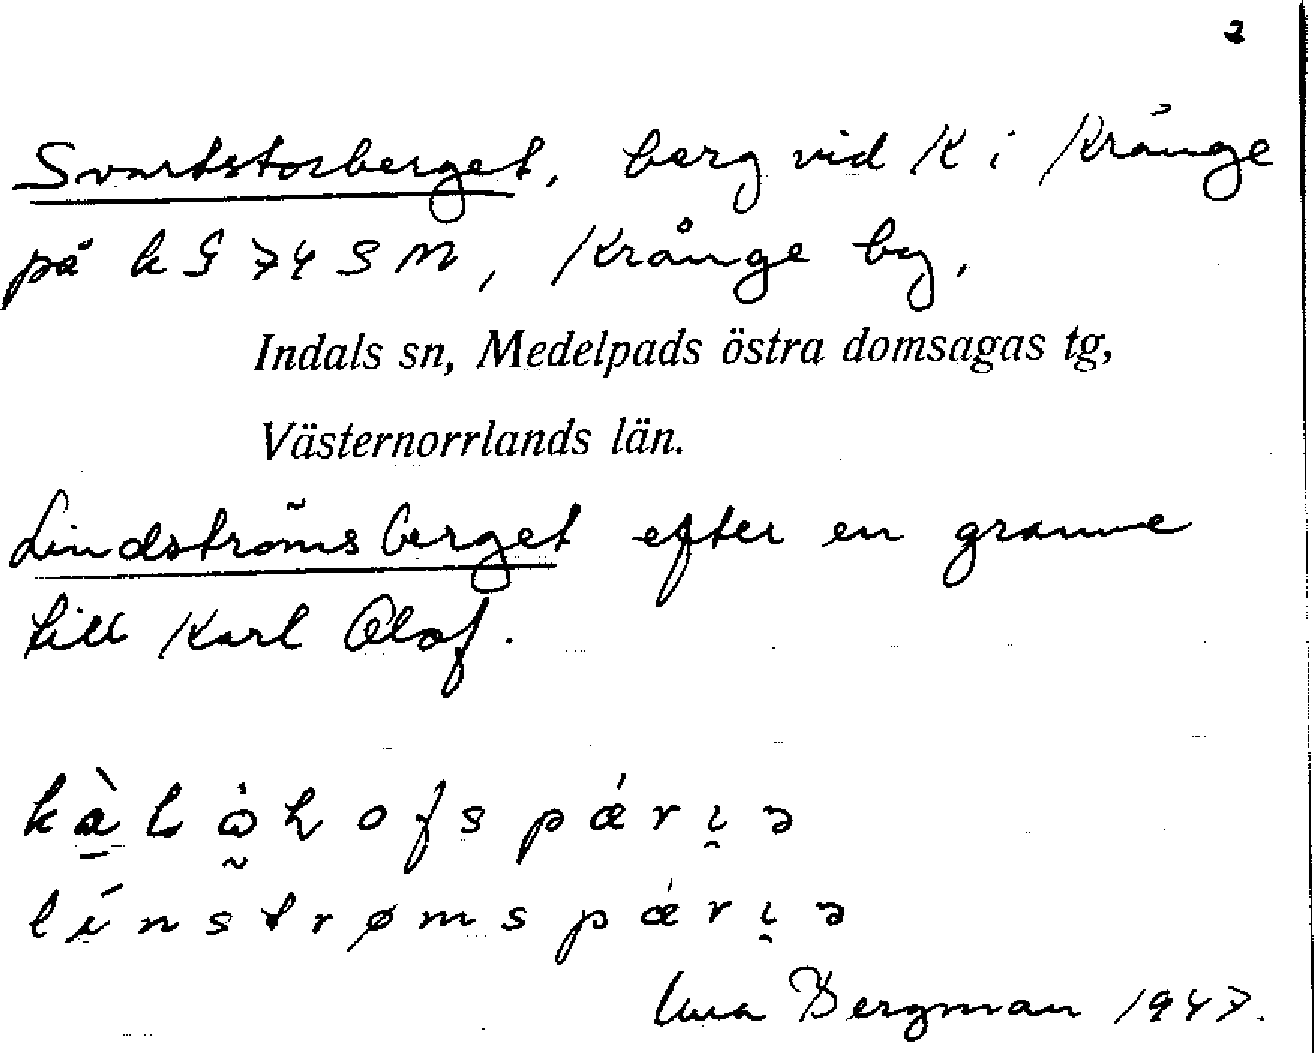 2
Svartstorberget, berg vid K i Krånge
på kS 74 SM, Krånge by,
Indals sn, Medelpads östra domsagas tg,
Västernorrlands län.
Lindströmsberget efter en granne
till Karl Olof.
Una Bergman 1947.